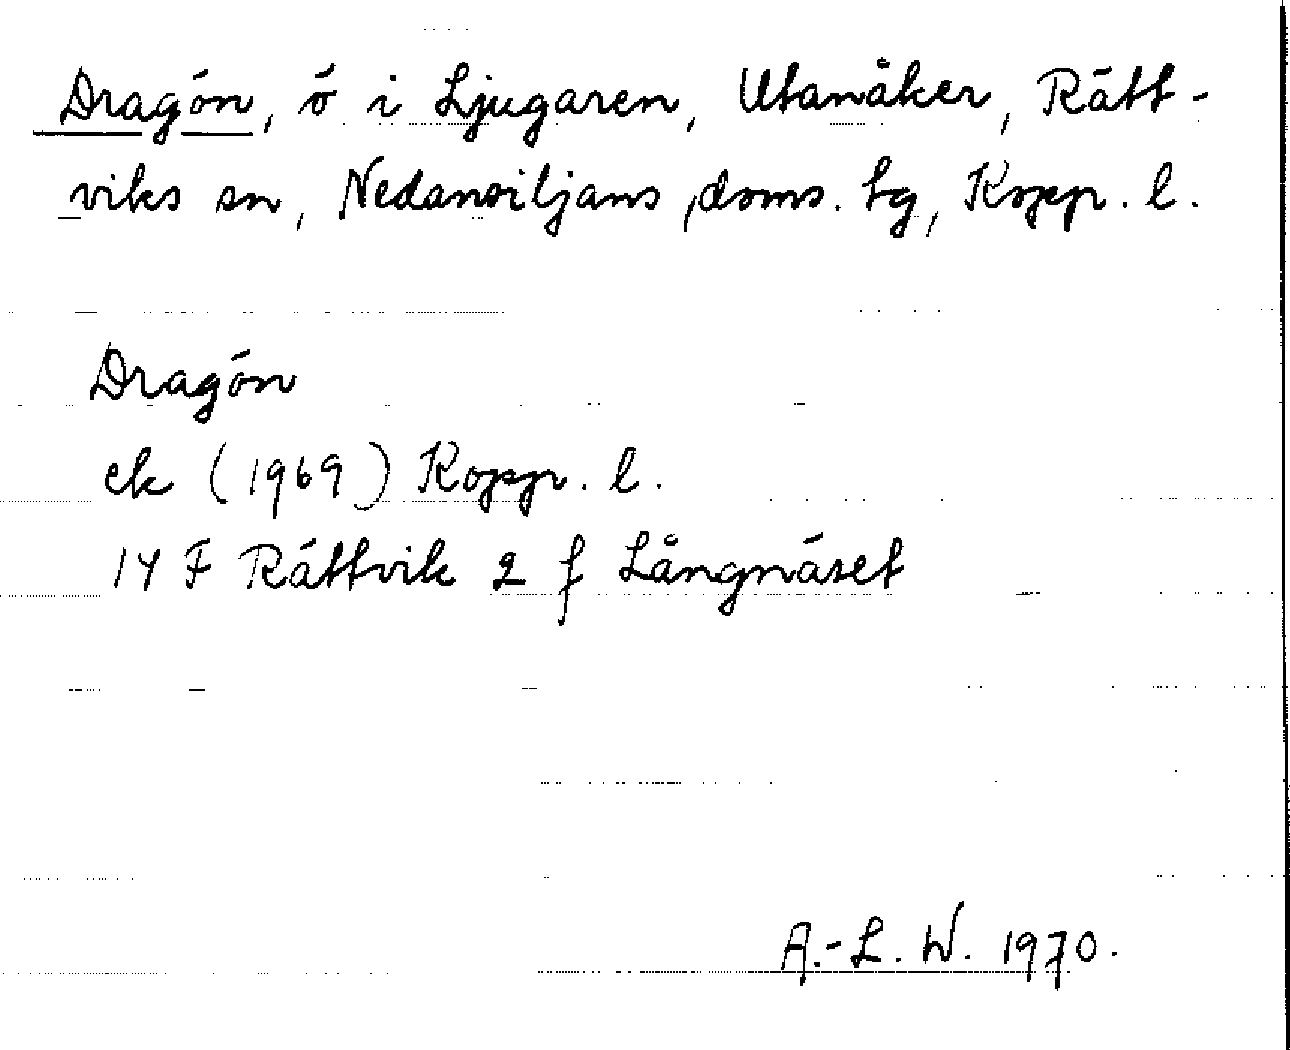 Dragön, ö i Ljugaren, Utanåker, Rätt-
viks sn, Nedansiljans doms. tg, Kopp. l.
Dragön
ek (1969) Kopp. l.
14 F Rättvik 2 f Långnäset
A.-L. W. 1970.